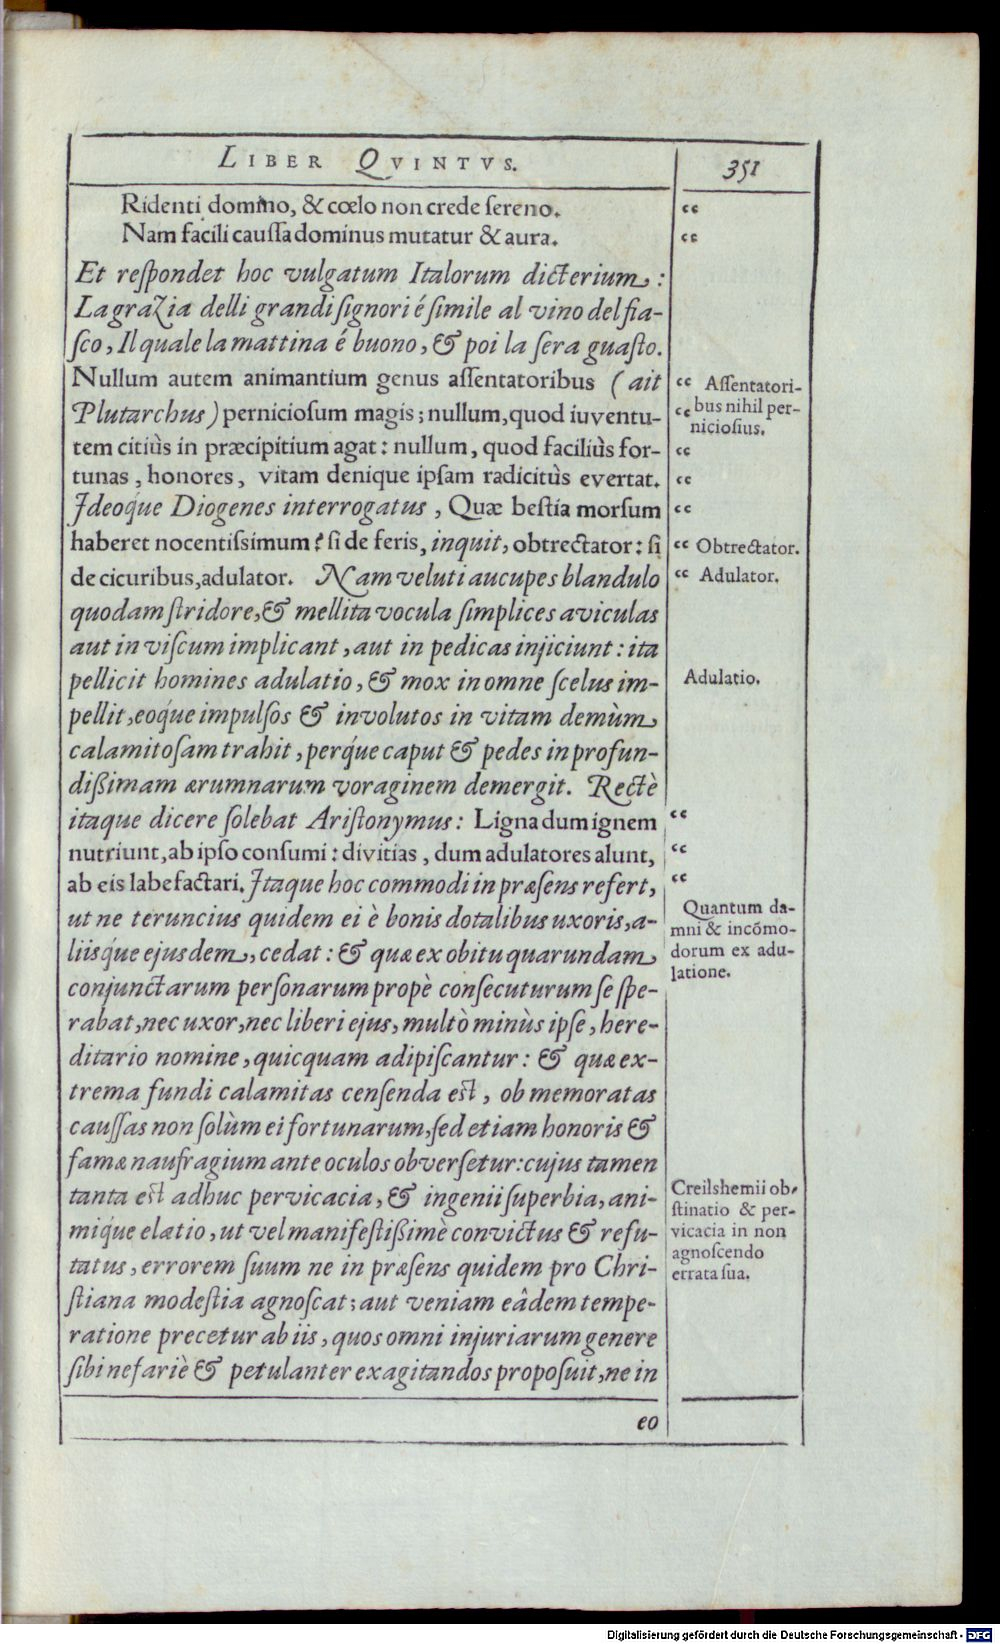 LIBER QVINTVS.
351
Ridenti domino, & cœlo non crede ſereno.
Nam facili cauſſa dominus mutatur & aura.
Et reſpondet hoc vulgatum Italorum dicterium:
La grazia delli grandi ſignori é ſimile al vino del fia-
ſco, Il quale la mattina é buono, & poi la ſera guaſto.
Nullum autem animantium genus aſſentatoribus (ait
Plutarchus) perniciosum magis; nullum, quod iuventu-
tem citiùs in præcipitium agat: nullum, quod faciliùs for-
tunas, honores, vitam denique ipſam radicitùs evertat.
Ideoque Diogenes interrogatus, Quæ beſtia morſum
haberet nocentiſsimum? ſi de feris, inquit, obtrectator: ſi
de cicuribus, adulator. Nam veluti aucupes blandulo
quodam ſtridore, & mellita vocula ſimplices aviculas
aut in viſcum implicant, aut in pedicas injiciunt: ita
pellicit homines adulatio, & mox in omne ſcelus im-
pellit, eoq́ue impulſos & involutos in vitam demùm
calamitoſam trahit, perq́ue caput & pedes in profun-
dißimam ærumnarum voraginem demergit. Rectè
itaque dicere ſolebat Ariſtonymus: Ligna dum ignem
nutriunt, ab ipſo conſumi: divitias, dum adulatores alunt,
ab eis labefactari. Itaque hoc commodi in præſens refert,
ut ne teruncius quidem ei è bonis dotalibus uxoris, a-
liisq́ue ejusdem, cedat: & quæ ex obitu quarundam
conjunctarum perſonarum propè conſecuturum ſe ſpe-
rabat, nec uxor, nec liberi ejus, multò minùs ipſe, here-
ditario nomine, quicquam adipiſcantur: & quæ ex-
trema fundi calamitas cenſenda eſt, ob memoratas
cauſſas non ſolùm ei fortunarum, ſed etiam honoris &
famæ naufragium ante oculos obverſetur: cujus tamen
tanta eſt adhuc pervicacia, & ingenii ſuperbia, ani-
miq́ue elatio, ut vel manifeſtißimè convictus & refu-
tatus, errorem ſuum ne in præſens quidem pro Chri-
ſtiana modeſtia agnoſcat; aut veniam eâdem tempe-
ratione precetur ab iis, quos omni injuriarum genere
ſibi nefariè & petulanter exagitandos propoſuit, ne in
eo
Aſſentatori-
bus nihil per-
nicioſius.
Obtrectator.
Adulator.
Adulatio.
Quantum da-
mni & incõmo-
dorum ex adu-
latione.
Creilshemii ob-
ſtinatio & per-
vicacia in non
agnoſcendo
errata ſua.
Digitalisierung gefördert durch die Deutsche Forschungsgemeinschaft - DFG